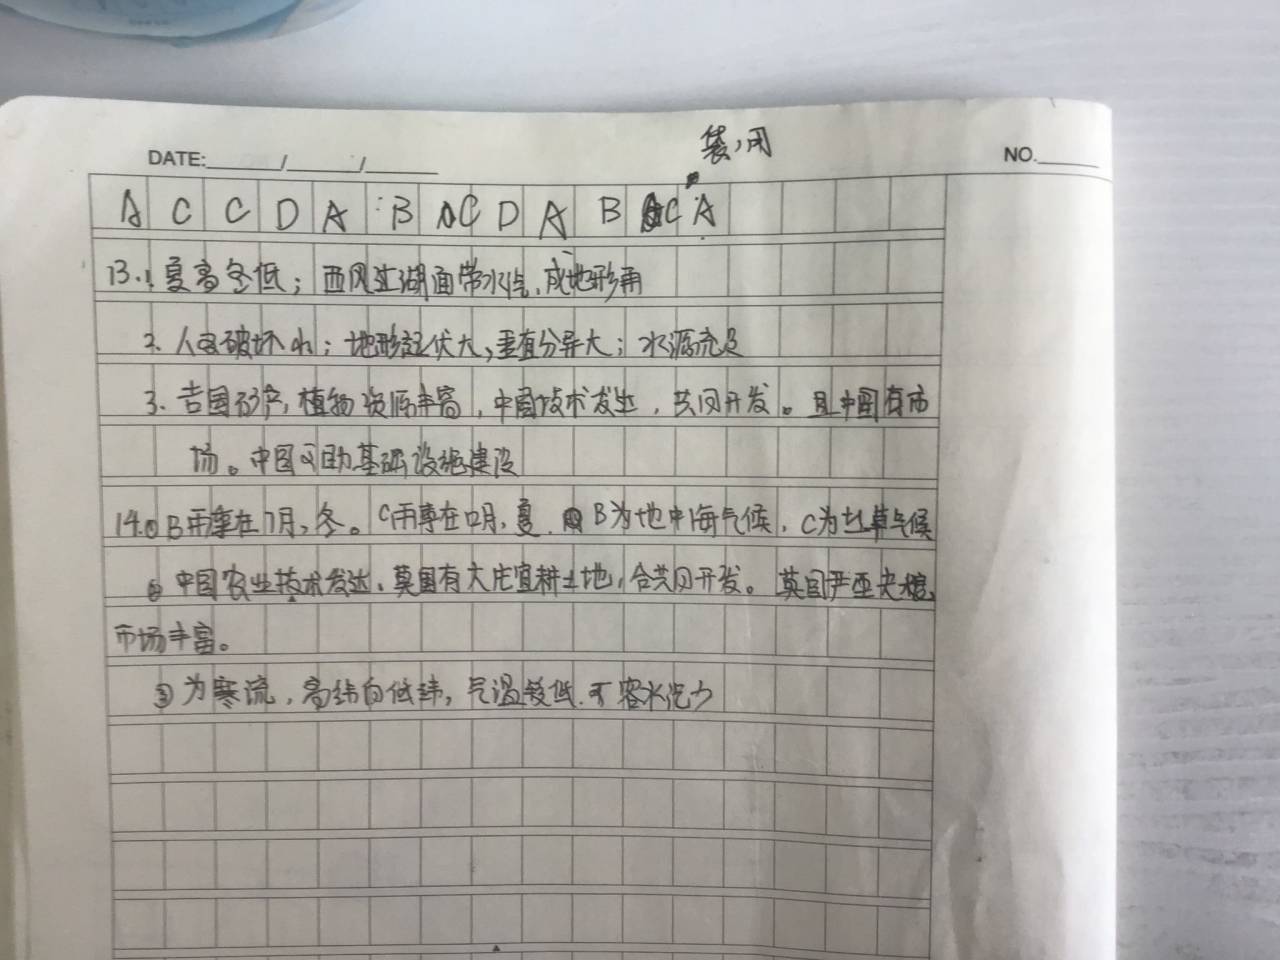 DATE: / /
NO.
A C C D A B C D A B C A
13.1 夏高冬低；西风过湖面带水汽，成地形雨
2. 人为破坏小；地形起伏大，垂直分异大；水源充足
3. 吉国矿产，植物资源丰富，中国技术发达，共同开发。且中国有市
场。中国可助基础设施建设
14.① B雨季在7月，冬。C雨季在 月，夏。B为地中海气候，C为 草气候
② 中国农业技术发达，莫国有大 宜耕土地，合共同开发。莫国严重 粮，
市场丰富。
③ 为寒流，高纬向低纬，气温较低，可容水汽少